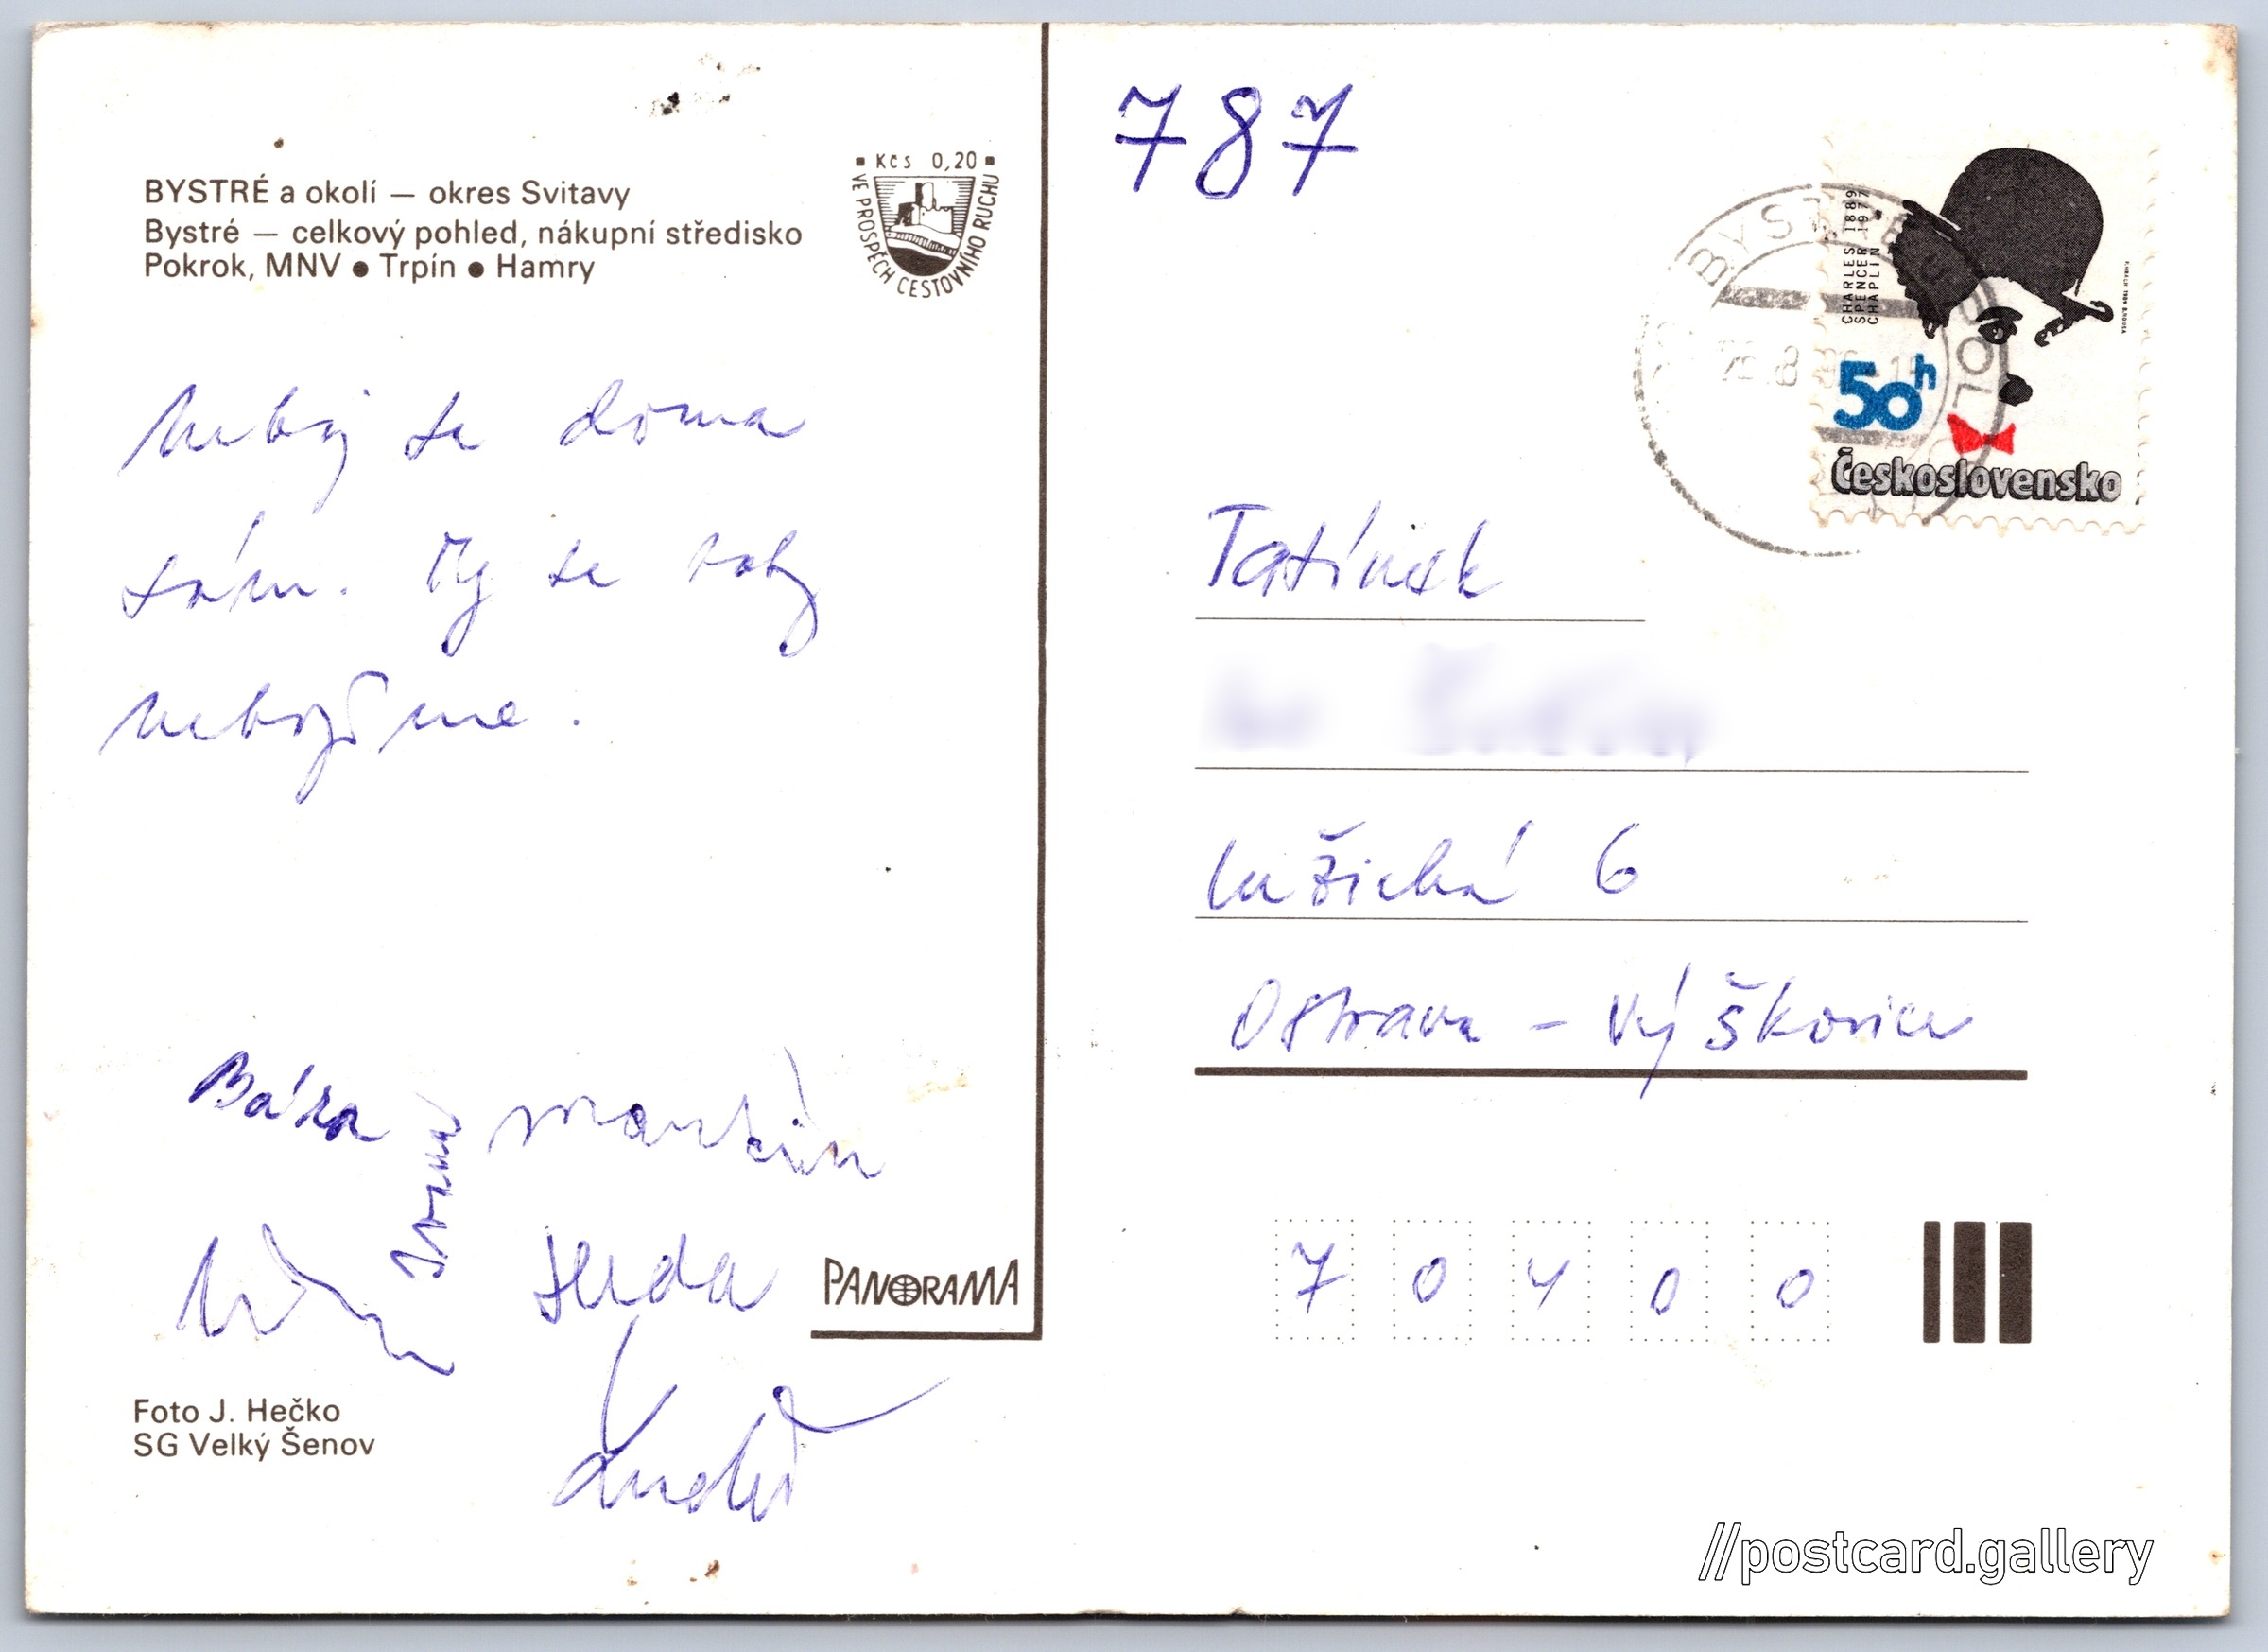 BYSTRÉ a okolí — okres Svitavy
Bystré — celkový pohled, nákupní středisko
Pokrok, MNV ● Trpín ● Hamry
▪ Kčs 0,20 ▪
VE PROSPĚCH CESTOVNÍHO RUCHU
Neboj se doma
sám. My se taky
nebojíme.
Bára
Martin
PANORAMA
Foto J. Hečko
SG Velký Šenov
787
CHARLES 1889
SPENCER 1977
CHAPLIN
50h
Československo
BYSTRÉ
Tatínek
Lužická 6
Ostrava - Výškovice
70400
//postcard.gallery